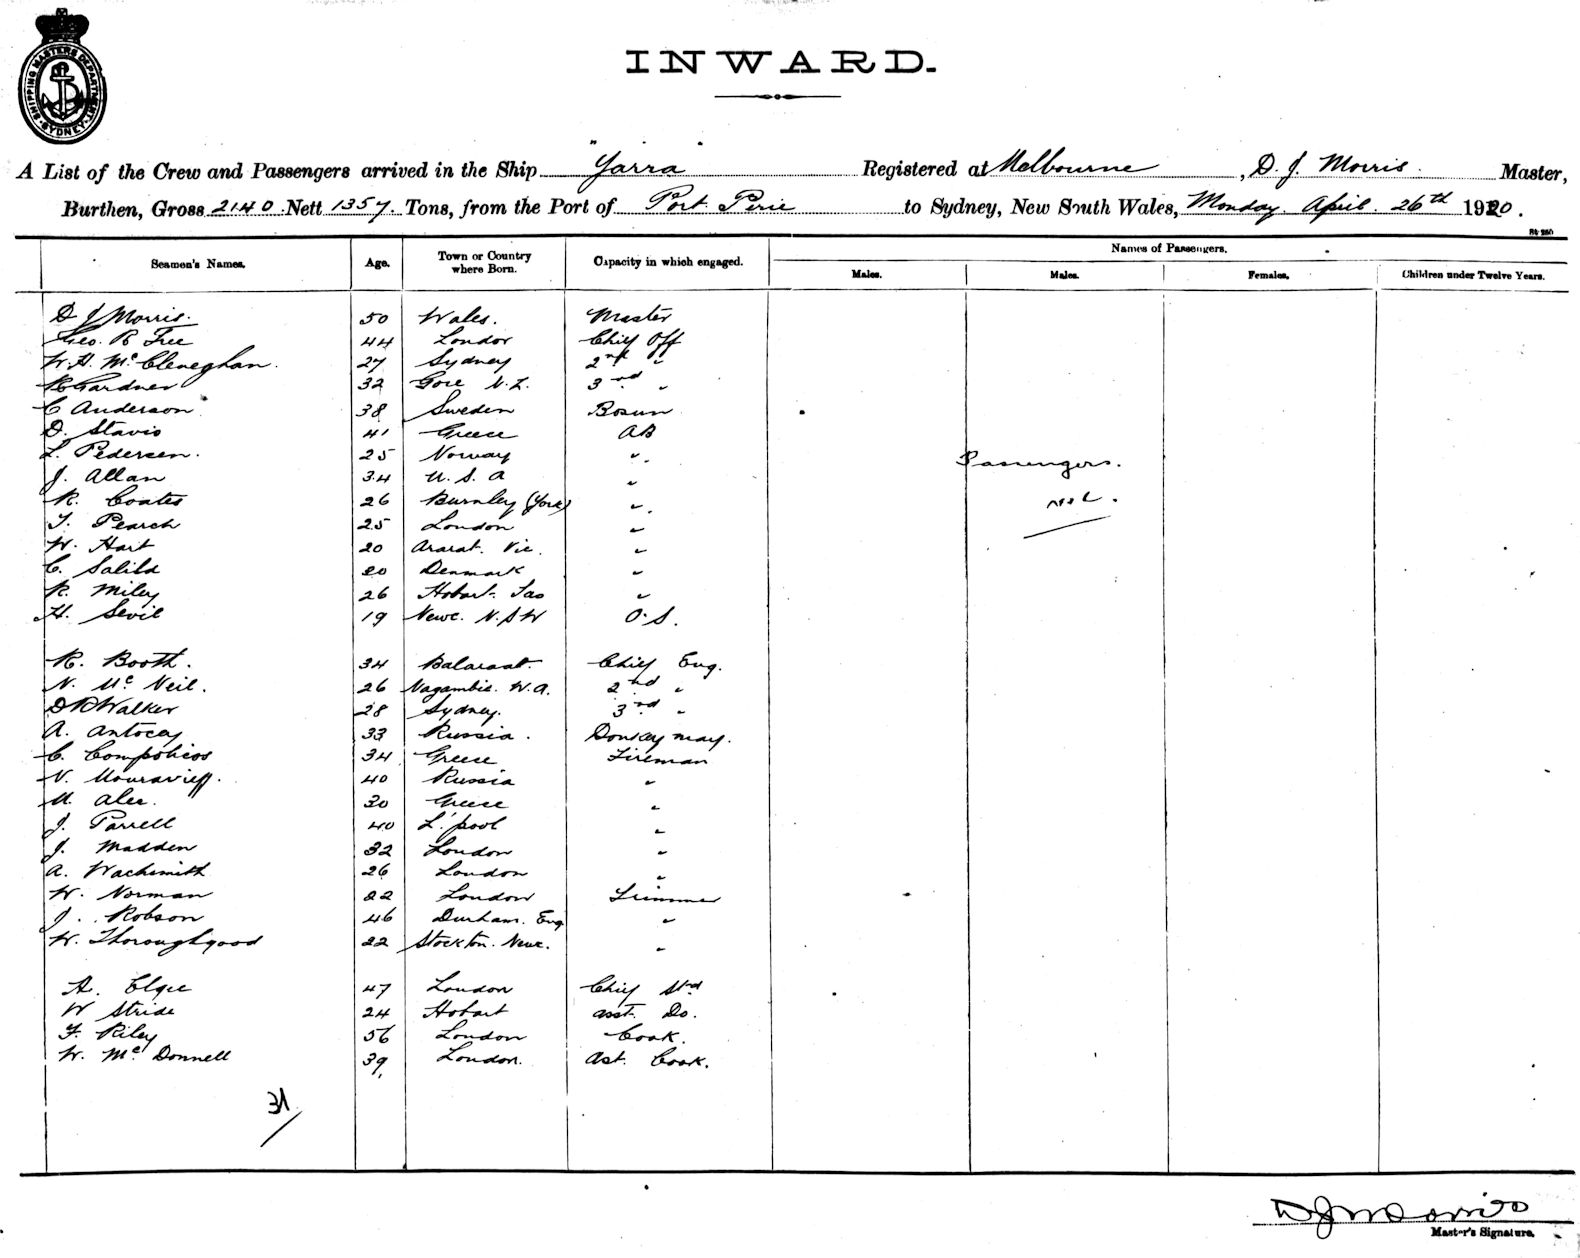 SHIPPING MASTERS DEPARTMENT SYDNEY
INWARD.
A List of the Crew and Passengers arrived in the Ship "Yarra" Registered at Melbourne, D. J. Morris. Master,
Burthen, Gross 2140 Nett 1357. Tons, from the Port of Port Pirie to Sydney, New South Wales, Monday. April. 26th 1920.
Names of Passengers.
Seamen's Names. Age. Town or Country where Born. Capacity in which engaged. Males. Males. Females. Children under Twelve Years.
D J Morris. 50 Wales. Master
Geo. R Free 44 London Chief Off
W. H. McCleneghan. 27 Sydney 2nd "
R Gardner 32 Gore N.Z. 3rd "
C Anderson 38 Sweden Bosun
D. Stavis 41 Greece AB
L. Pedersen. 25 Norway ".
Passengers.
J. Allan 34 U.S.A "
R. Coates 26 Burnley (York) ".
nil.
T. Pearch 25 London "
W. Hart 20 Ararat. Vic. "
C. Salild 20 Denmark "
R. Miley 26 Hobart. Tas "
H. Sevil 19 Newc. N.S.W O.S.
R. Booth. 34 Balaraat. Chief Eng.
N. McNeil. 26 Nagambie. W.A. 2nd "
D R Walker 28 Sydney. 3rd "
A. 33 Russia. Donkey man.
C. 34 Greece Fireman
N. Mouravieff. 40 Russia "
M. Alec. 30 Greece "
J. Parrell 40 L'pool "
J. Madden 32 London "
A. Wachsmith 26 London "
W. Norman 22 London Trimmer
J. Robson 46 Durham. Eng "
W. Thoroughgood 22 Stockton. Newc. "
A. Elgie 47 London Chief Std
W Stride 24 Hobart asst. Do.
F. Riley 56 London Cook.
W. McDonnell 39 London. Ast. Cook.
31
D J Morris
Master's Signature.